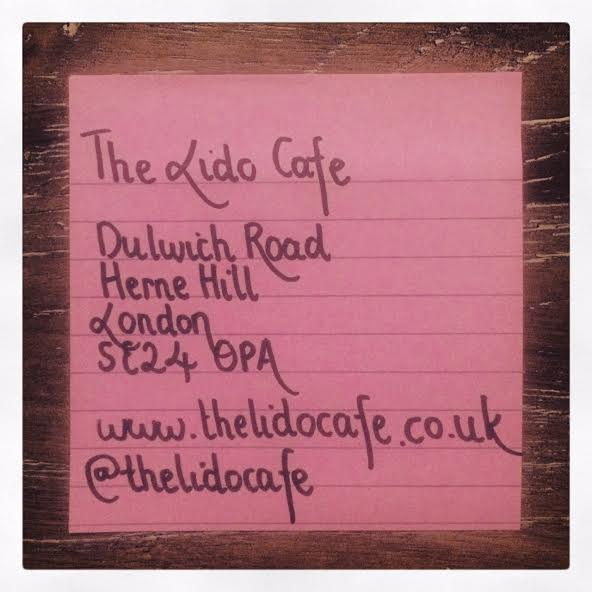 The Lido Cafe
Dulwich Road
Herne Hill
London
SE24 0PA
www.thelidocafe.co.uk
@thelidocafe